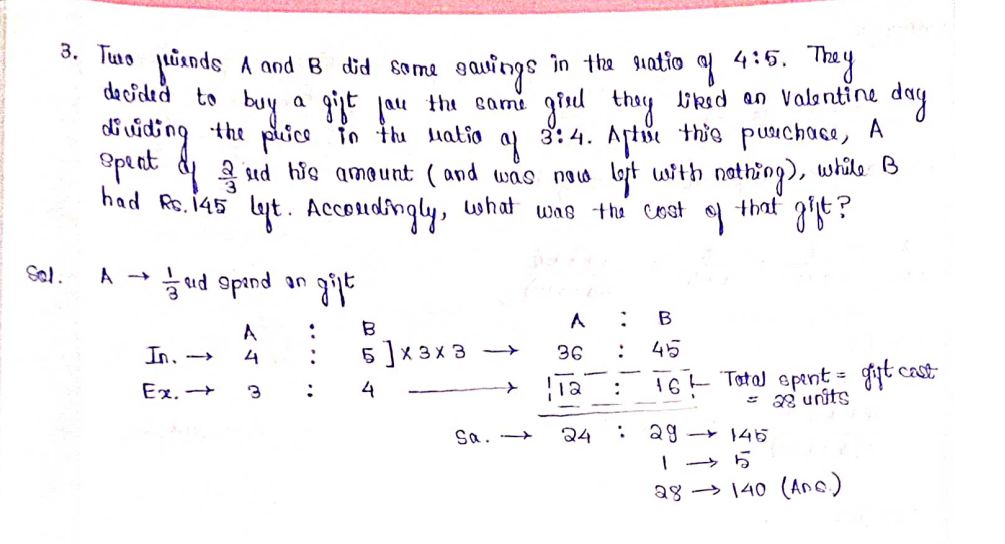 3. Two friends A and B did some savings in the ratio of 4:5. They
decided to buy a gift for the same girl they liked on Valentine day
dividing the price in the ratio of 3:4. After this purchase, A
spent of 2/3 rd his amount (and was now left with nothing), while B
had Rs. 145 left. Accordingly, what was the cost of that gift?
Sol. A → 1/3 rd spend on gift
A : B A : B
In. → 4 : 5 ] x 3 x 3 → 36 : 45
Ex. → 3 : 4 → 12 : 16 Total spent = gift cost
= 28 units
Sa. → 24 : 29 → 145
1 → 5
28 → 140 (Ans.)